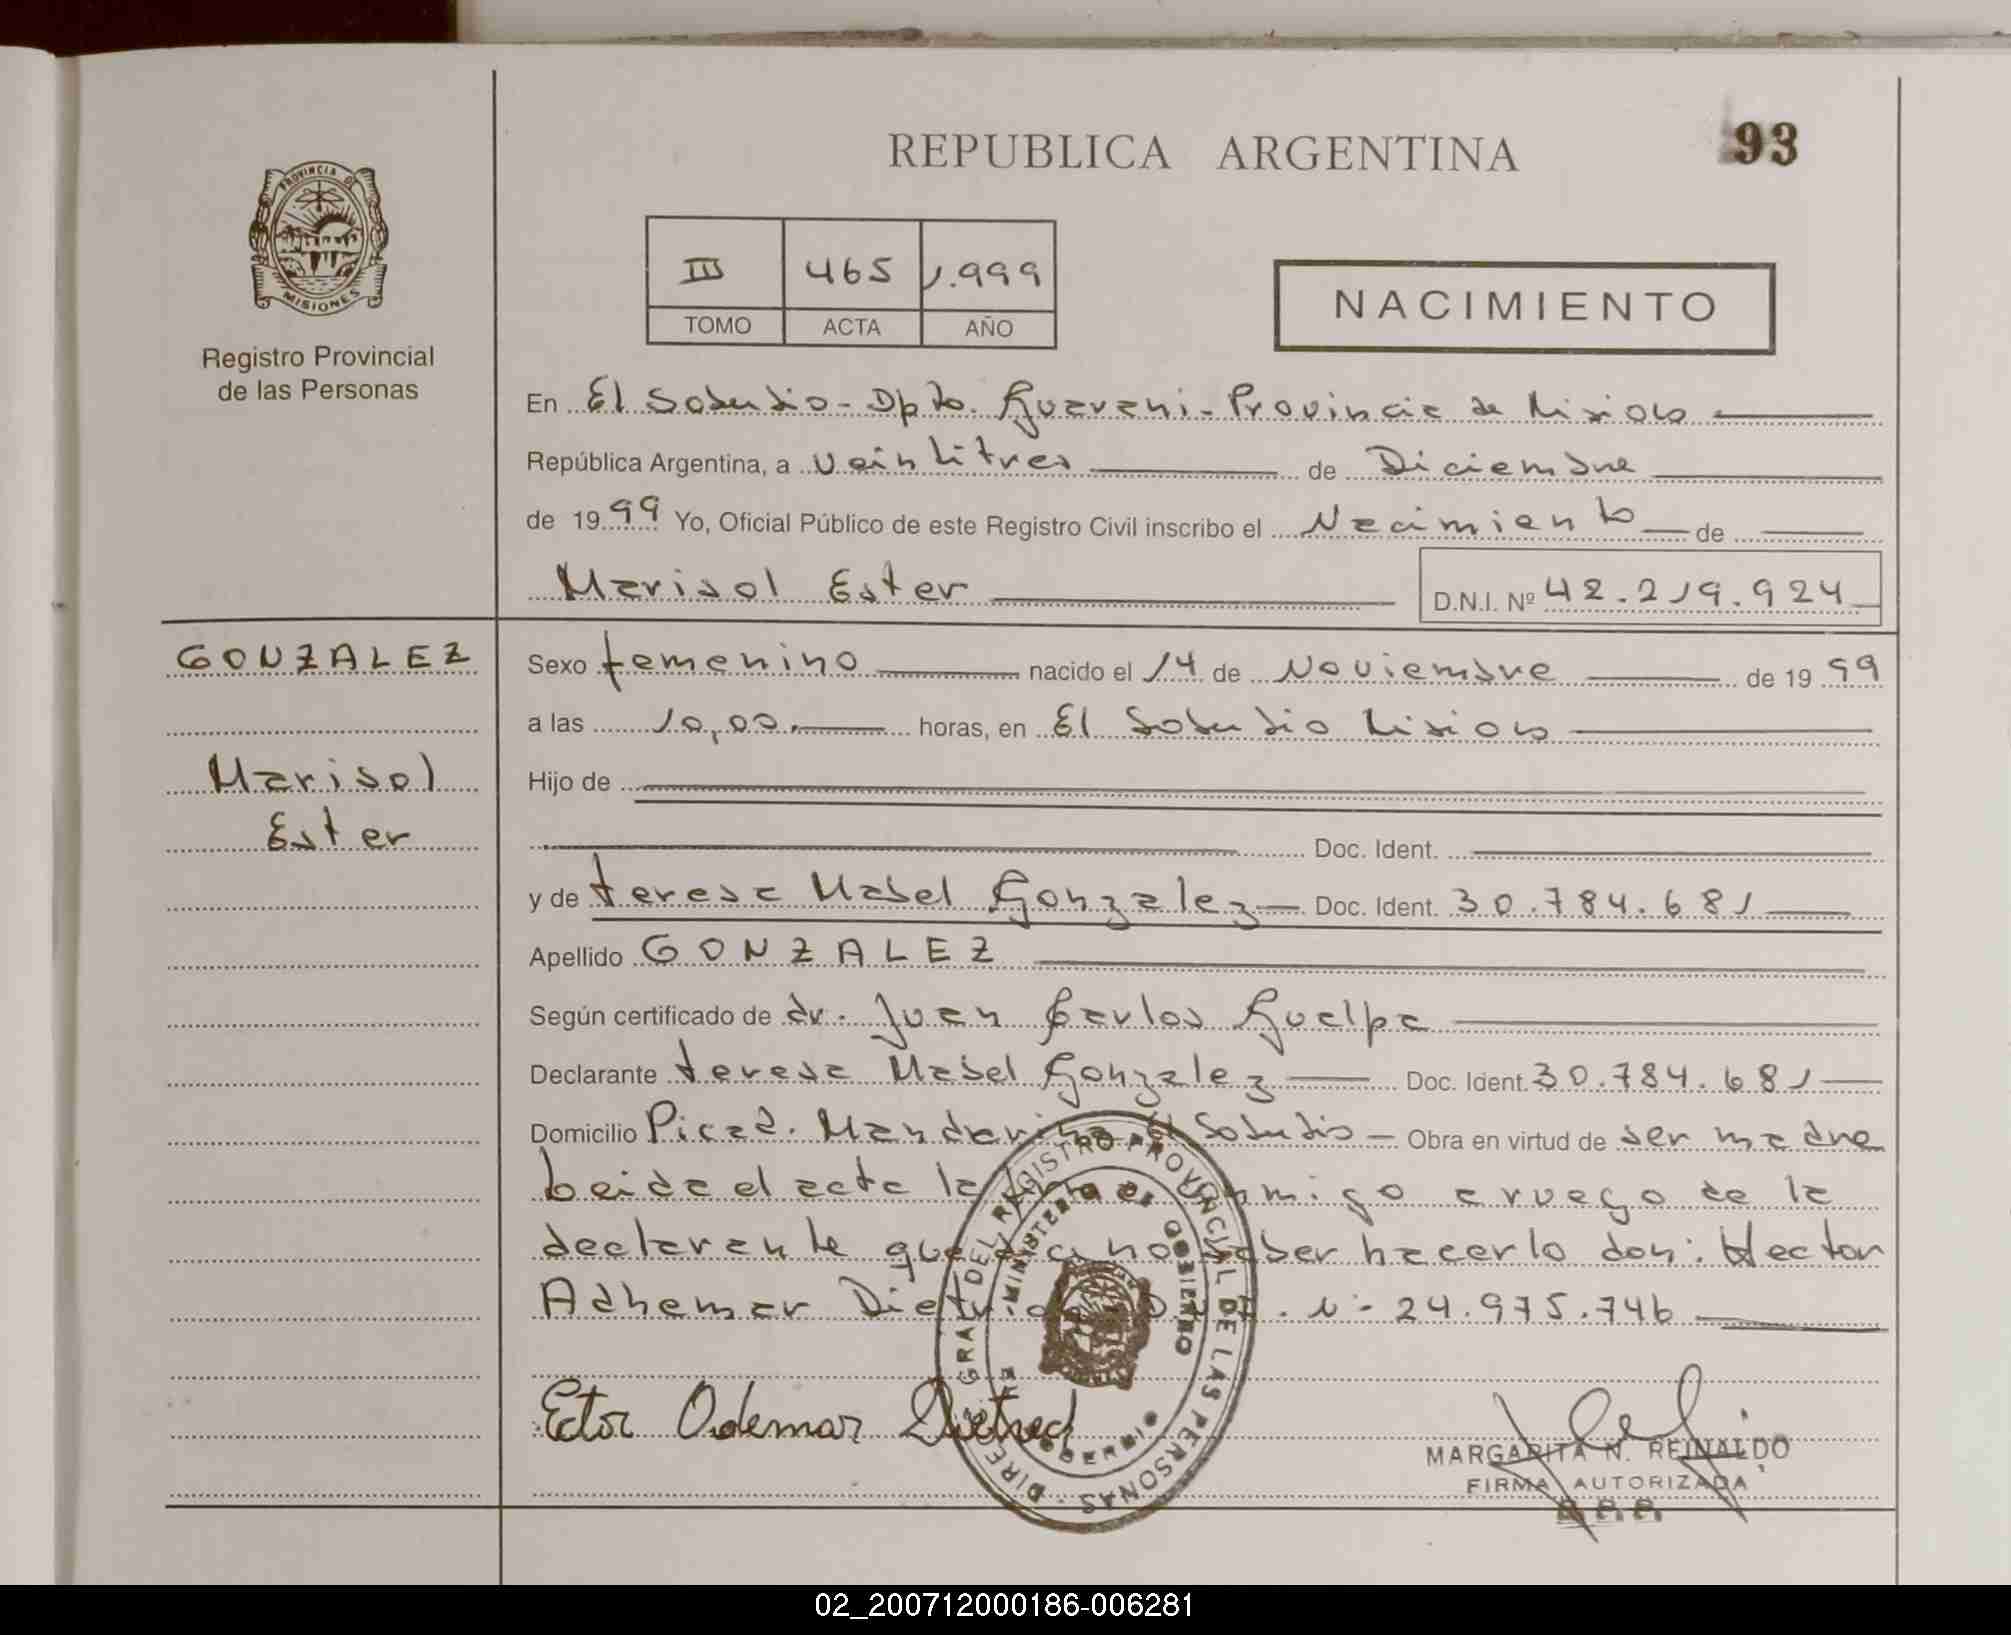 REPUBLICA ARGENTINA
93
PROVINCIA DE
MISIONES
Registro Provincial
de las Personas
III 465 1.999
TOMO ACTA AÑO
NACIMIENTO
En El Soberbio - Dpto. Guarani - Provincia de Misiones
República Argentina, a veintitres de Diciembre
de 1999 Yo, Oficial Público de este Registro Civil inscribo el Nacimiento de
Marisol Ester D.N.I. Nº 42.219.924
GONZALEZ
Marisol
Ester
Sexo femenino nacido el 14 de Noviembre de 1999
a las 10,00. horas, en El Soberbio Misiones
Hijo de
Doc. Ident.
y de teresa Mabel Gonzalez Doc. Ident. 30.784.681
Apellido GONZALEZ
Según certificado de dr. Juan Carlos Guelpa
Declarante teresa Mabel Gonzalez Doc. Ident. 30.784.681
Domicilio Picad. Mandarina El Soberbio Obra en virtud de ser madre
Leida el acta la firma conmigo a ruego de la
declarante que dice no saber hacerlo don: Hector
Adhemar Dietrich D.N.I. Nº 24.975.746
Ector Odemar Dietrech
DIREC. GRAL DEL REGISTRO PROVINCIAL DE LAS PERSONAS
MINISTERIO DE GOBIERNO
MARGARITA N. REINALDO
FIRMA AUTORIZADA
02_200712000186-006281